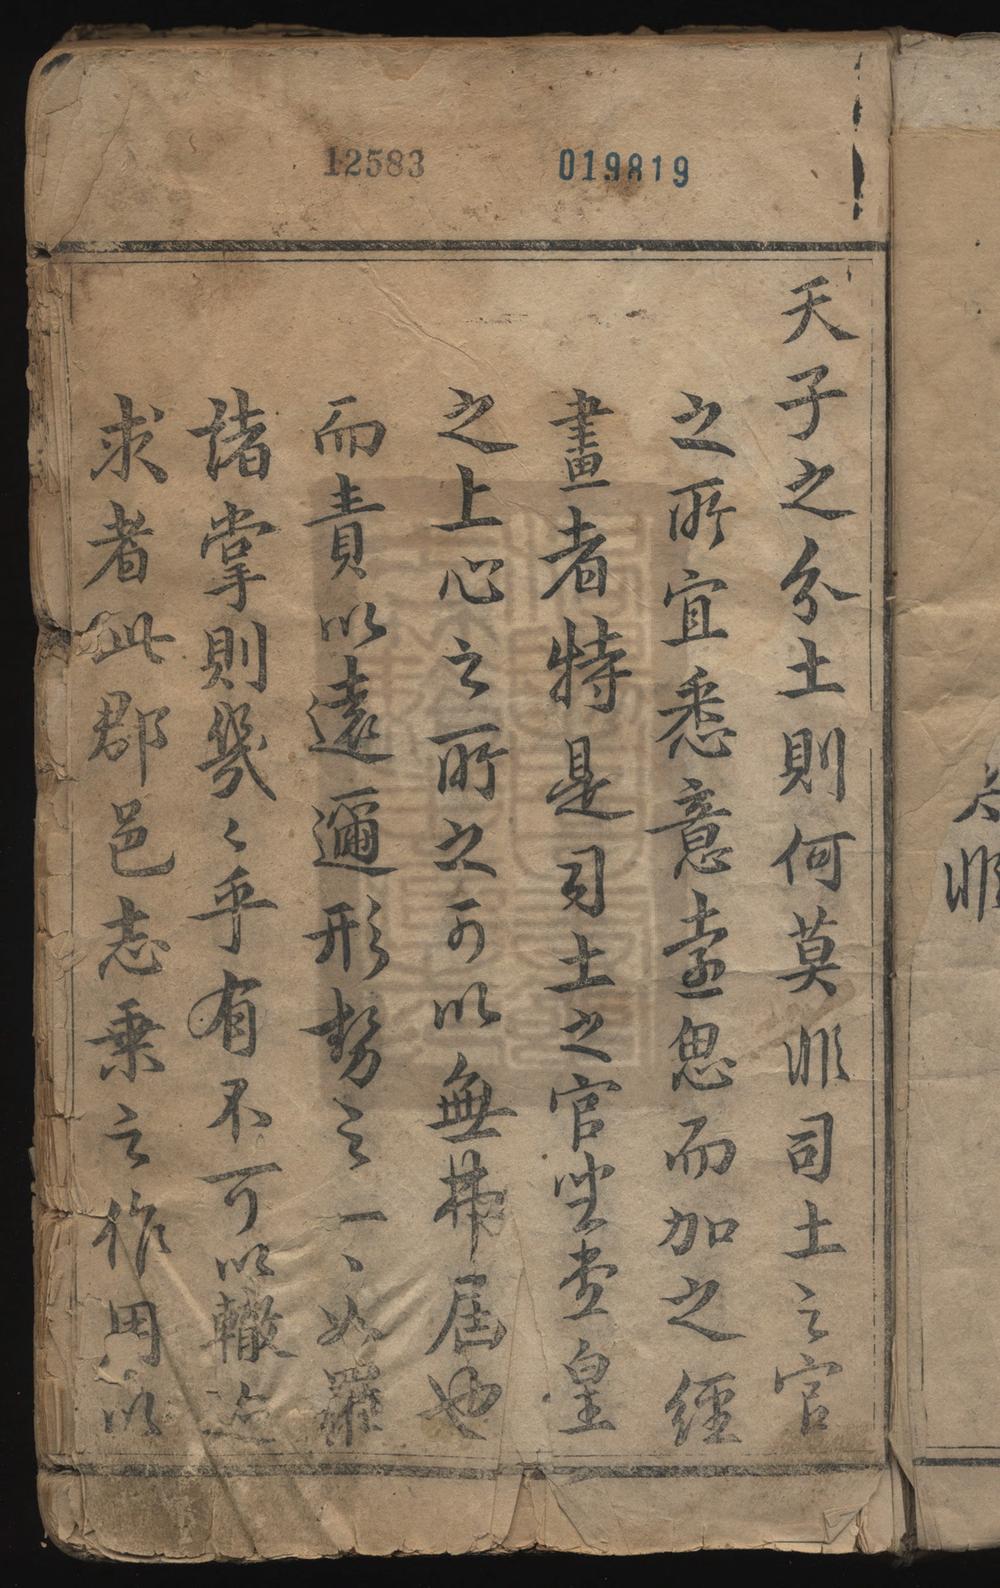 12583
019819
天子之分土則何莫非司土之官
之所宜悉意壹思而加之經
畫者特是司土之官坐堂皇
之上心之所之可以無弗屆也
而責以遠邇形勢之一〻如羅
諸掌則幾〻乎有不可以轍迹
求者此郡邑志乘之作用以